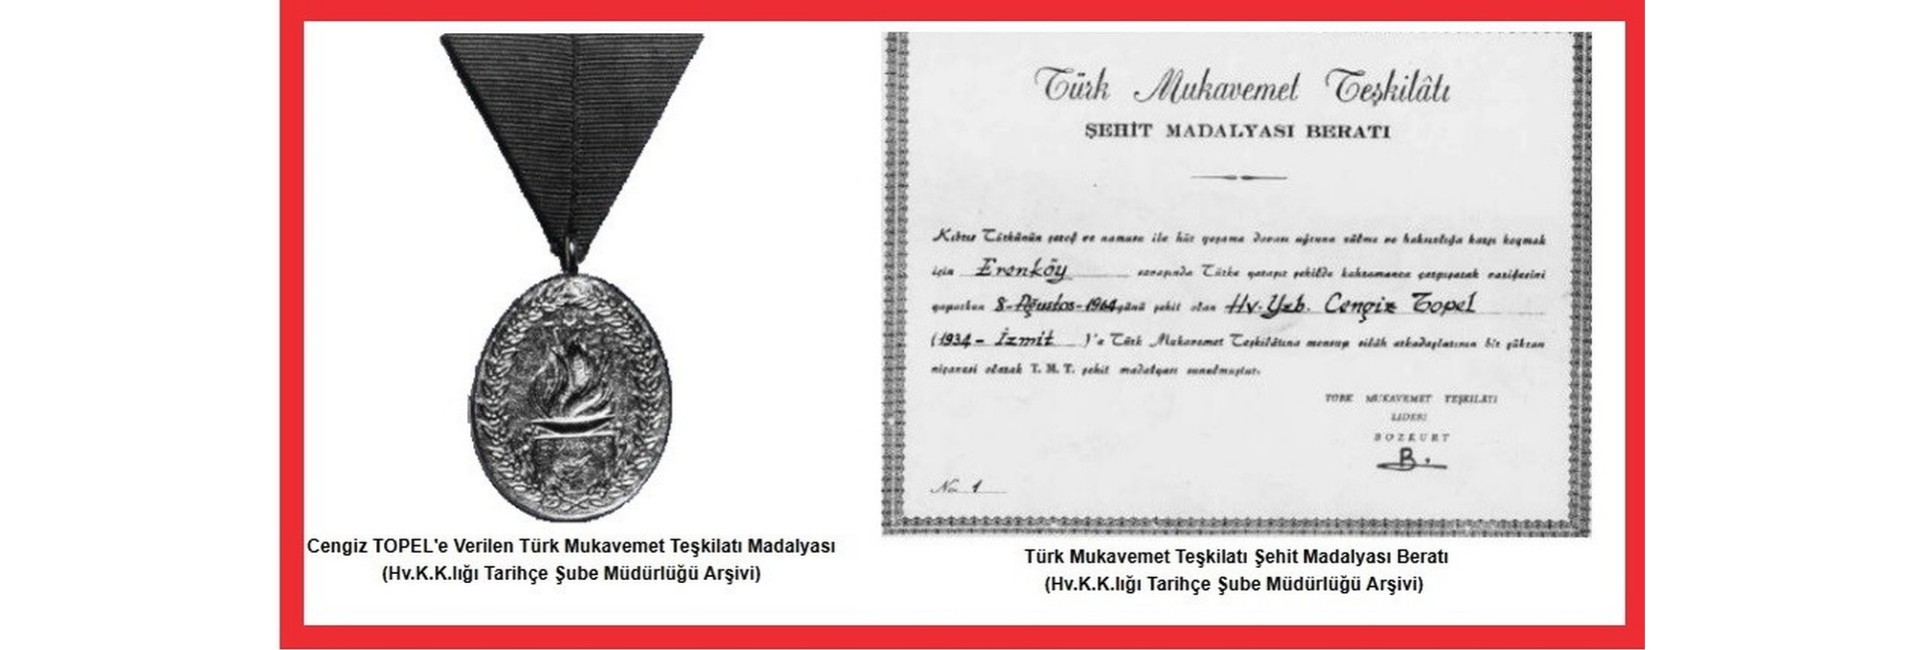 Türk Mukavemet Teşkilâtı
ŞEHİT MADALYASI BERATI
Kıbrıs Türkünün şeref ve namusu ile hür yaşama davası uğruna zülme ve haksızlığa karşı koymak
için Erenköy savaşında Türke yaraşır şekilde kahramanca çarpışarak vazifesini
yaparken 8-Ağustos-1964 günü şehit olan Hv. Yzb. Cengiz Topel
(1934 - İzmit )'e Türk Mukavemet Teşkilâtına mensup silâh arkadaşlarının bir şükran
nişanesi olarak T. M. T. şehit madalyası sunulmuştur.
TÜRK MUKAVEMET TEŞKİLATI
LİDERİ
BOZKURT
B.
No: 1
Cengiz TOPEL'e Verilen Türk Mukavemet Teşkilatı Madalyası
(Hv.K.K.lığı Tarihçe Şube Müdürlüğü Arşivi)
Türk Mukavemet Teşkilatı Şehit Madalyası Beratı
(Hv.K.K.lığı Tarihçe Şube Müdürlüğü Arşivi)